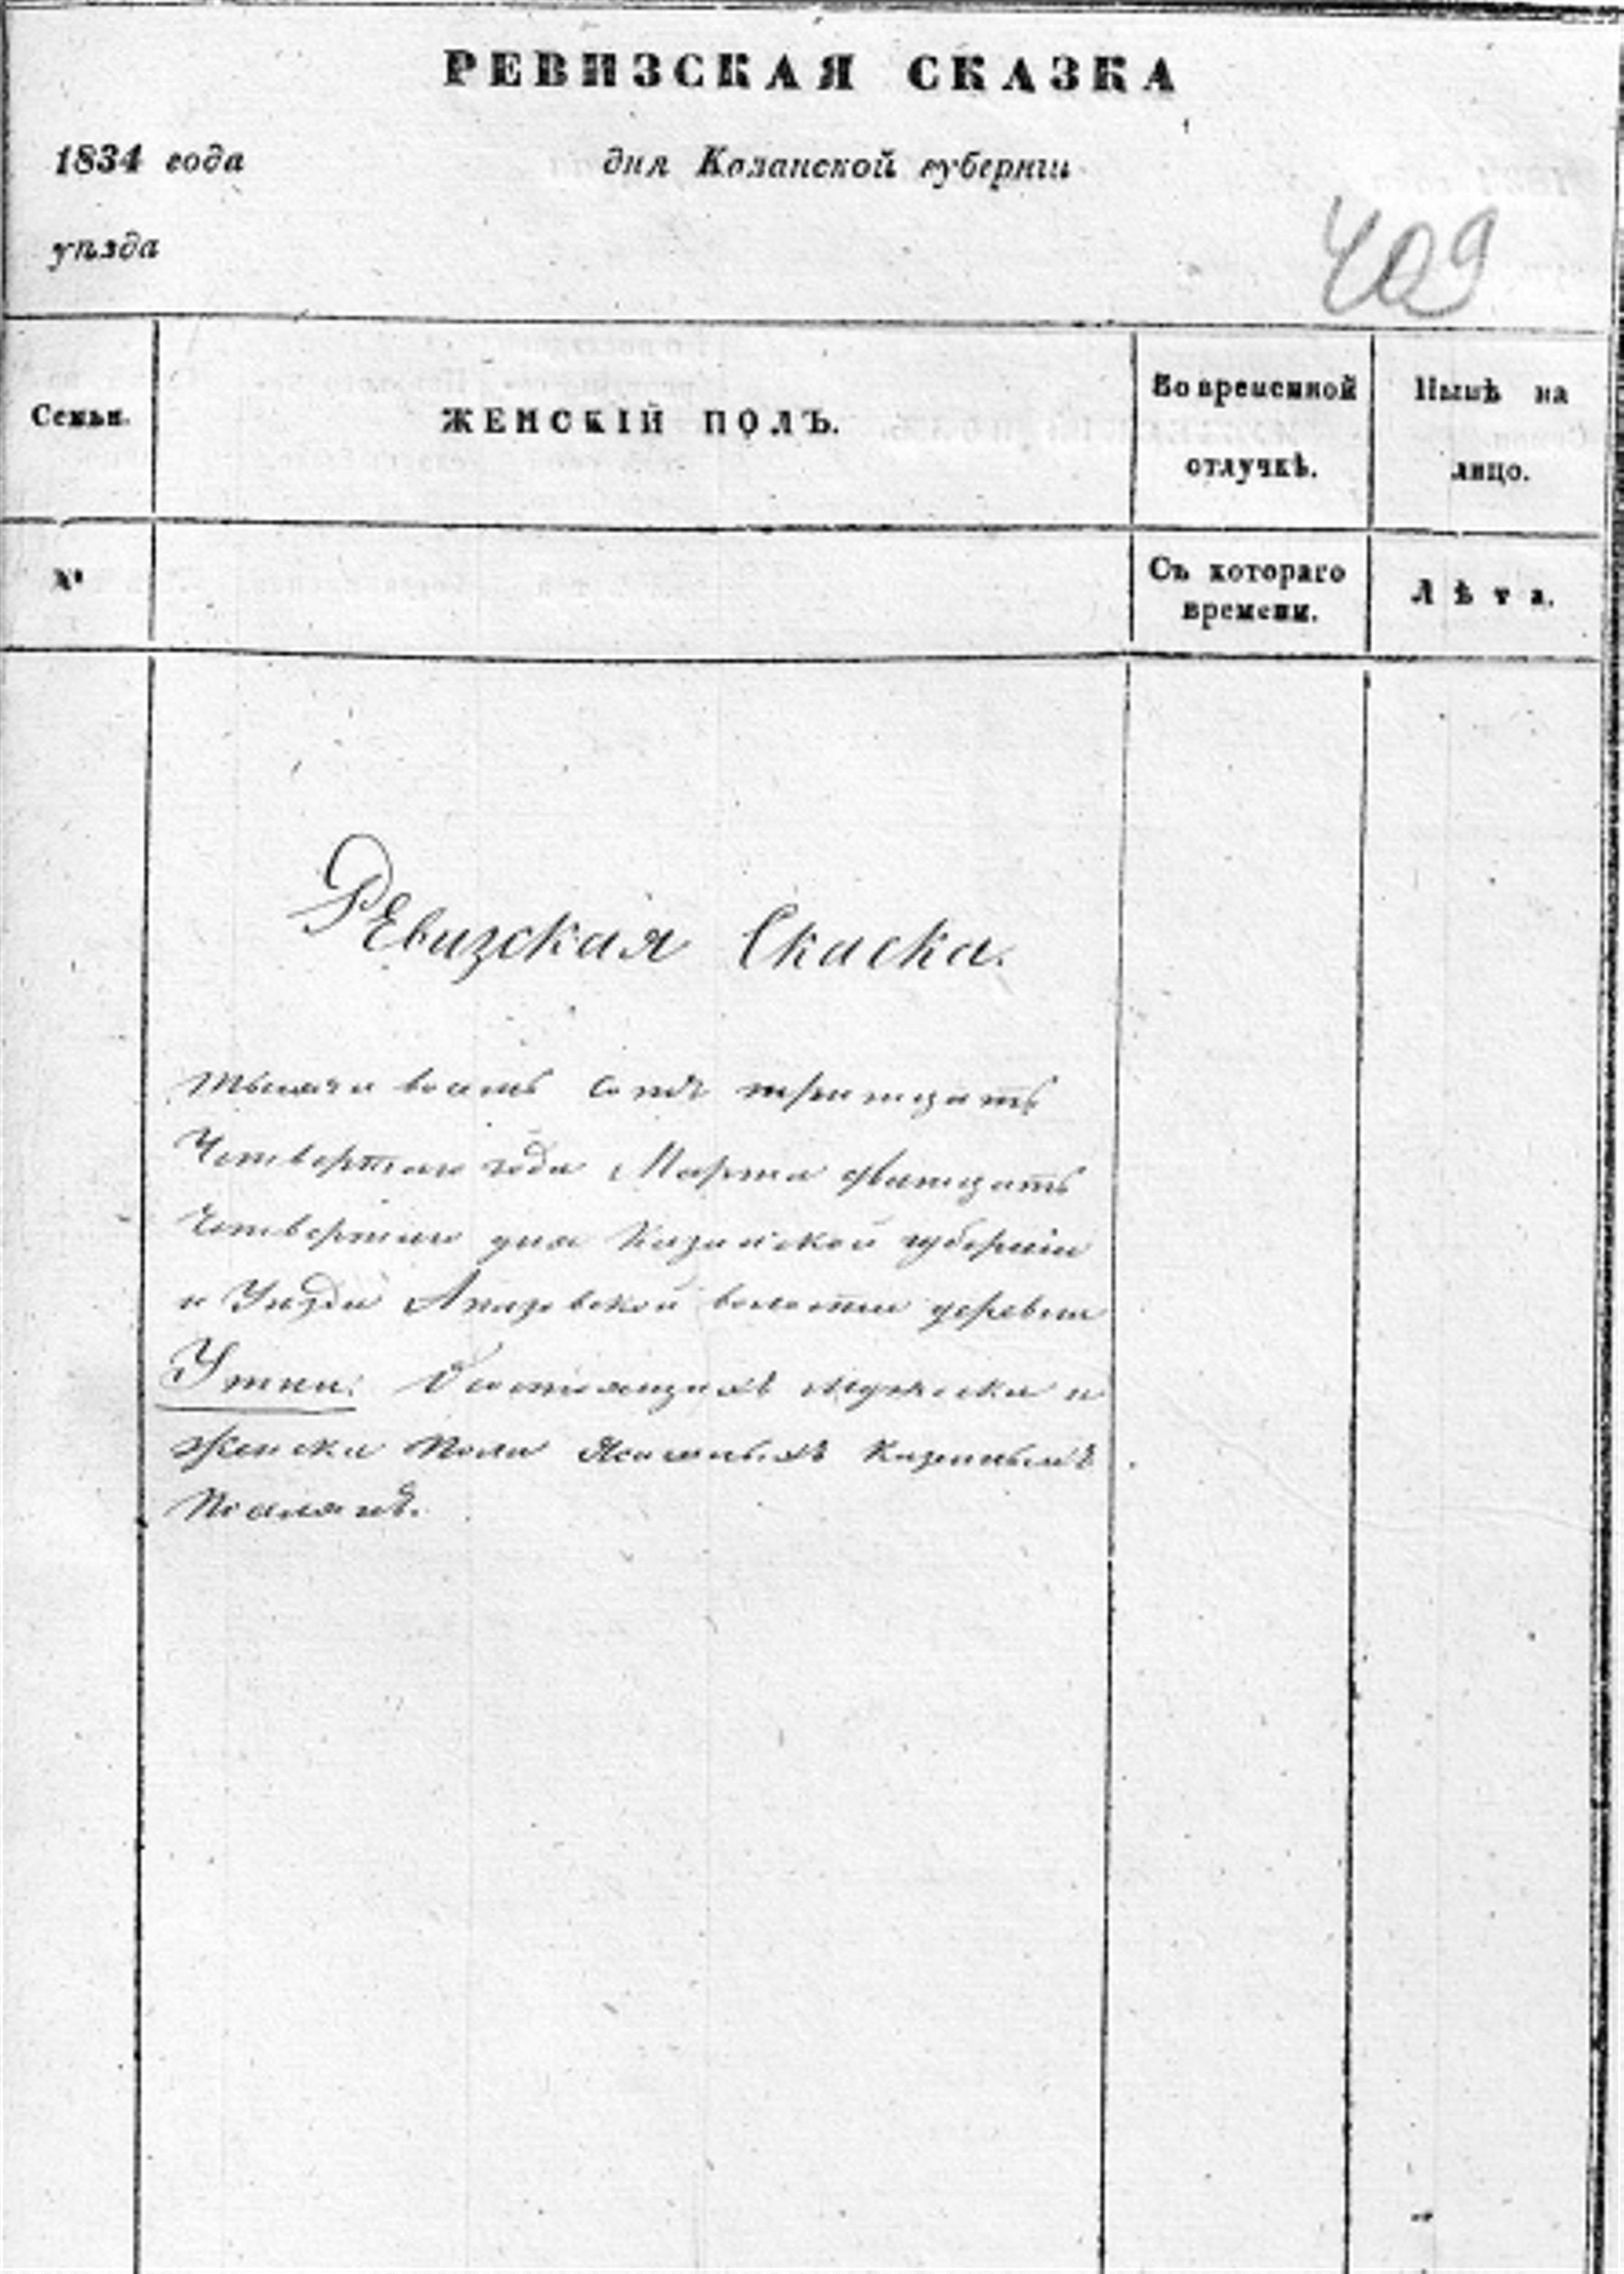 РЕВИЗСКАЯ СКАЗКА
1834 года дня Казанской губерніи
уѣзда
409
Семьи. ЖЕНСКІЙ ПОЛЪ. Во временной отлучкѣ. Нынѣ на лицо.
№ Съ котораго времени. Лѣта.
Ревизская Скаска.
тысяча восемь сотъ тритцать
Четвертаго года Марта дватцать
Четвертаго дня Казанской губерніи
и Уѣзда Апазовской волости деревни
Утни. Состоящихъ мужеска и
женска пола Ясашныхъ